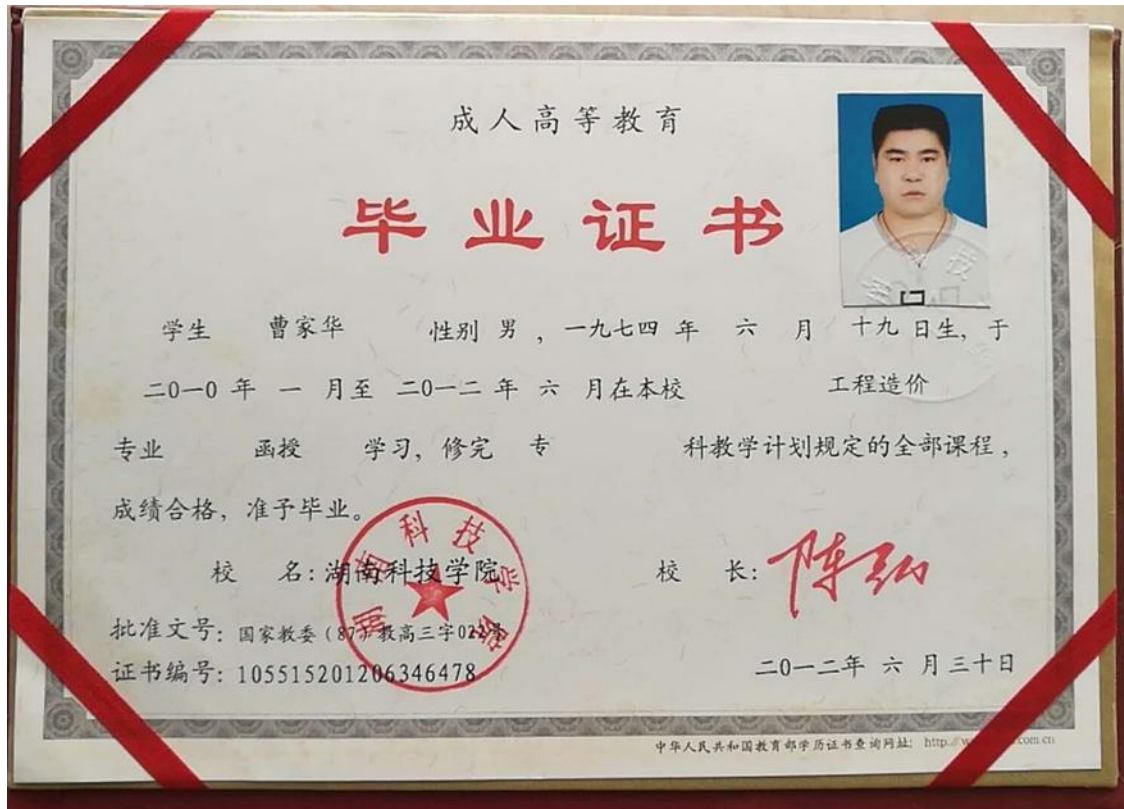 成人高等教育
毕业证书
学生 曹家华 性别 男，一九七四 年 六 月 十九 日生，于
二〇一〇 年 一 月至 二〇一二 年 六 月在本校 工程造价
专业 函授 学习，修完 专 科教学计划规定的全部课程，
成绩合格，准予毕业。
湖南科技学院
校 名：湖南科技学院 校 长：陈弘
批准文号：国家教委（87）教高三字022号
证书编号：105515201206346478
二〇一二年 六 月三十日
中华人民共和国教育部学历证书查询网址：http://w com.cn